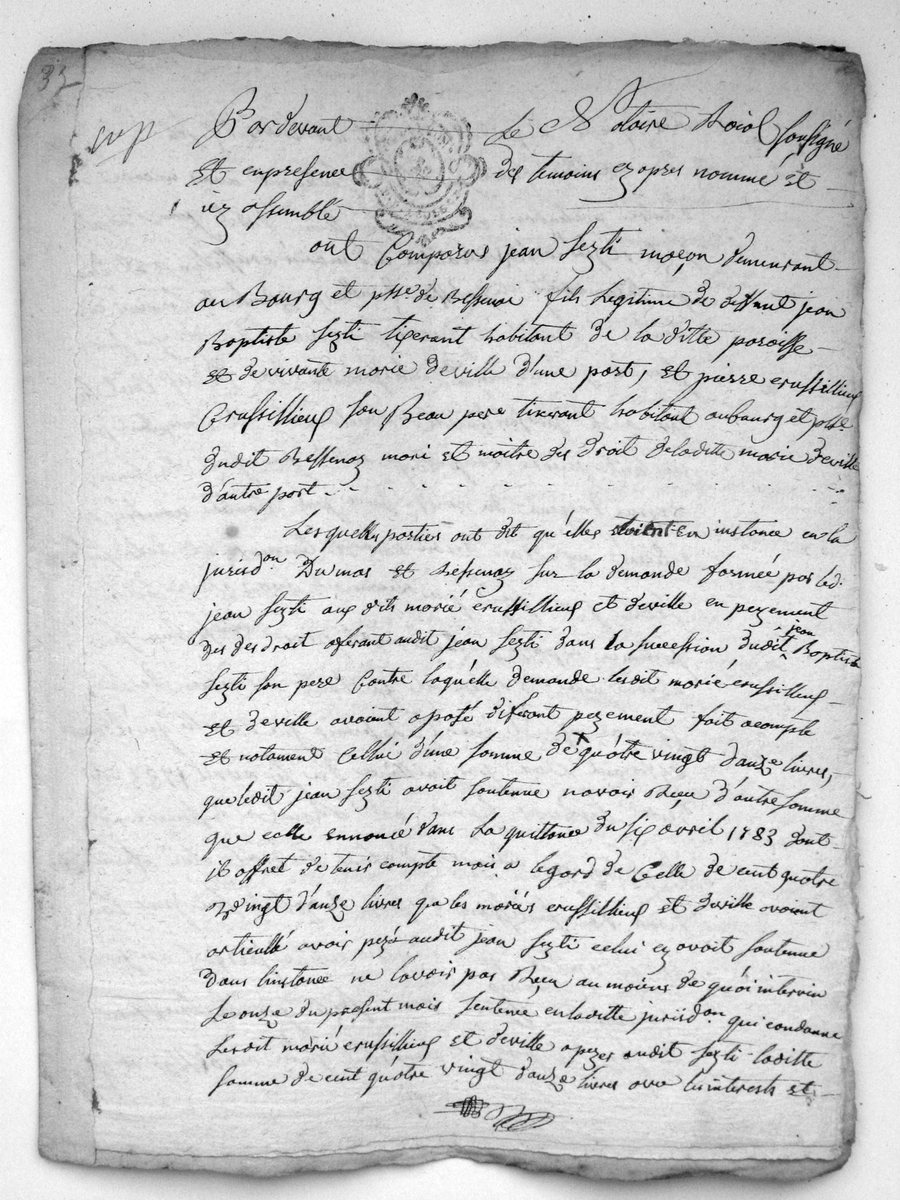 33
Pardevant Le Notaire Roial soussigné
Et en presence des temoins ezapres nommé et
iez assemblé
ont Comparus jean sezti maçon demeurant
au Bourg et psse de Bessenai fils legitime de deffunt jean
Baptiste sezti tixerant habitant de la ditte paroisse
et de vivante marie deville d'une part, et pierre crussillieux
Crussillieux son Beau pere tixerant habitant au bourg et psse
dudit Bessenaz mari et maitre des droit de laditte marie deville
d'autre part
Lesquelles parties ont dit qu'elles etoient en instance en la
jurisdon Du mas et Bessenaz sur la demande formée par led.
jean sezti aux dits marié crussillieux et deville en pezement
des des droit aferant audit jean sezti dans la succession dudit jean Baptiste
sezti son pere Contre laquelle demande lesdit marié crussillieux
et deville avoient oposé diferant pezement fait acompte
et notament Cellui d'une somme de quatre vingt d'auze livres,
que ledit jean sezti avoit soutenue navoir Reçu d'autre somme
que celle ennoncé dans La quittance du six avril 1783 dont
il offret de tenir compte mais a legard de Celle de cent quatre
vingt d'auze livres que les mariés crussillieux et deville avoient
articullé avoir pezé audit jean sezti celui cy avoit soutenue
dans linstance ne lavoir pas Reçu au moiens de quoi intervin
Le onze du present mois sentence en laditte jurisdon qui condanne
Lesdit marié crussillieux et deville a pezer audit sezti laditte
somme de cent quatre vingt d'auze livres avec les interests et